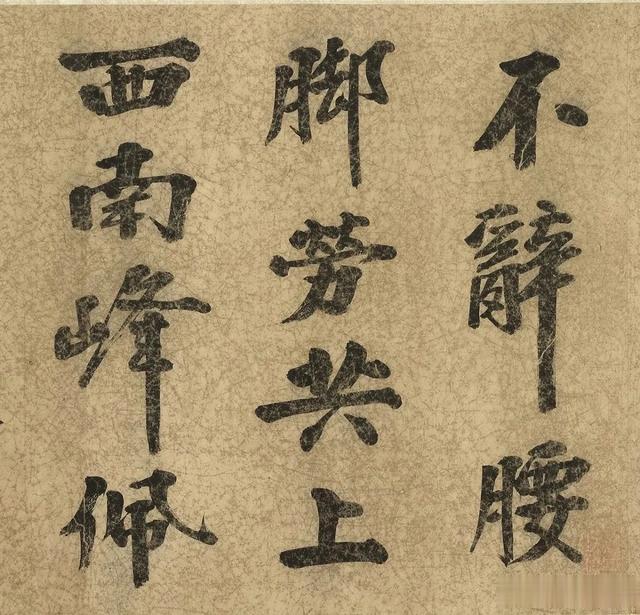 不辭腰
脚劳共上
西南峰佩